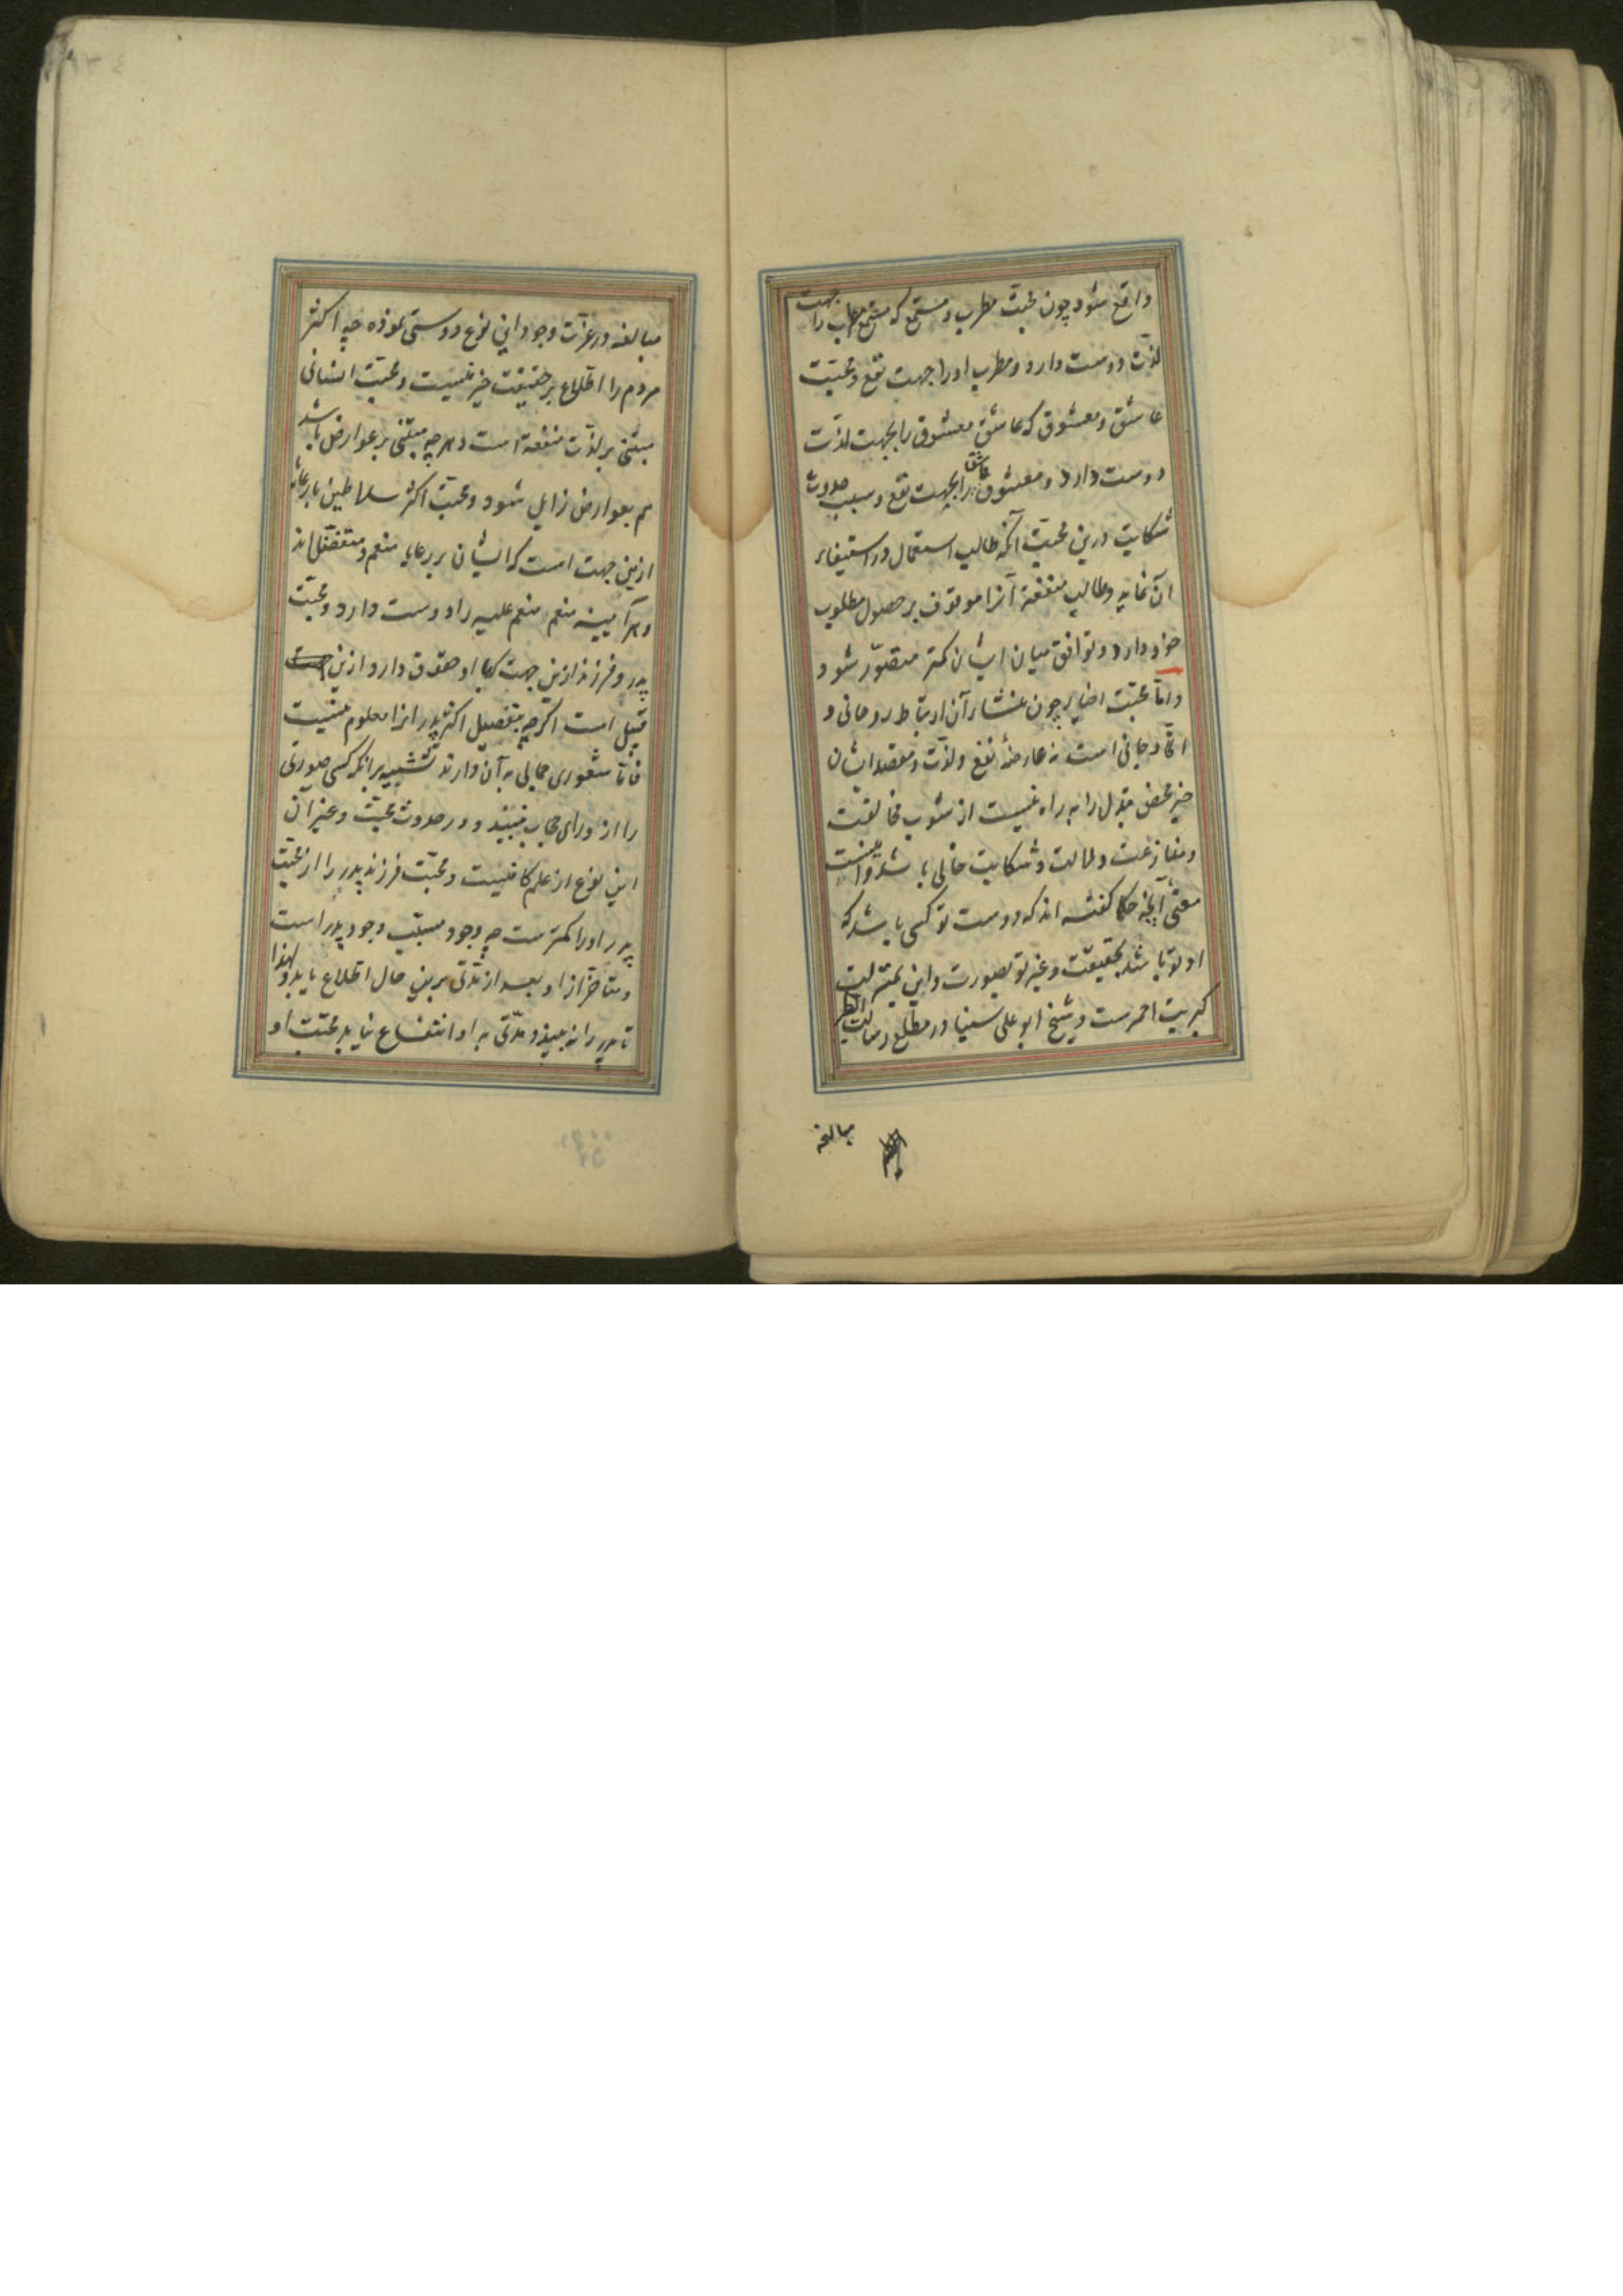 واقع شود چون محبّت مطرب و مستمع که مستمع مطرب را جهت
لذّت دوست دارد و مطرب او را جهت نفع و محبّت
عاشق و معشوق که عاشق معشوق را بجهت لذّت
دوست دارد و معشوق عاشق را بجهت نفع و سبب حدوث
شکایت درین محبّت آنکه طالب استعجال در استیفاء
آن نماید و طالب منفعة آنرا موقوف بر حصول مطلوب
خود دارد و توافق میان ایشان کمتر متصوّر شود
و امّا محبّت اخیار چون منشاء آن ارتباط روحانی و
اتّحاد جانی است نه عارضهٔ نفع و لذّت و مقصد ایشان
خیر محض تبدّل را به راه نیست از شوب مخالفت
و منازعت و ملالت و شکایت خالی باشد و اینست
معنی آنچه حکما گفته اند که دوست تو کسی باشد که
او تو باشد بحقیقت و غیر تو بصورت و این بمنزلت
کبریت احمرست و شیخ ابو علی سینا در مطلع رسالت الطیر
مبالغه
مبالغه در عزّت وجود این نوع دوستی نموده چه اکثر
مردم را اطّلاع بر حقیقت خیر نیست و محبّت ایشانی
مبتنی بر لذّت منفعة است و هرچه مبتنی بر عوارض باشد
هم بعوارض زایل شود و محبّت اکثر سلاطین با رعایا
ازین جهت است که ایشان بر رعایا منعم و متفضّل اند
و هرآیینه منعم منعم علیه را دوست دارد و محبّت
پدر و فرزند ازین جهت که با او حقوق دارد ازین
قبیل است اگرچه بتفصیل اکثر پدر انرا معلوم نیست
فامّا شعوری جمالی به آن دارند تشبیه برانکه کسی صورتی
را از ورای حجاب بیند و در حدوث محبّت و غیر آن
این نوع از علم کافیست و محبّت فرزند پدر را از محبّت
پدر او را کمترست چه وجود مسبّب وجود پدر است
و متاخّر از او بعد از مدّتی برین حال اطّلاع یابد و لهذا
تا پدر را نه بیند و مدّتی به او انتفاع نیابد محبّت او